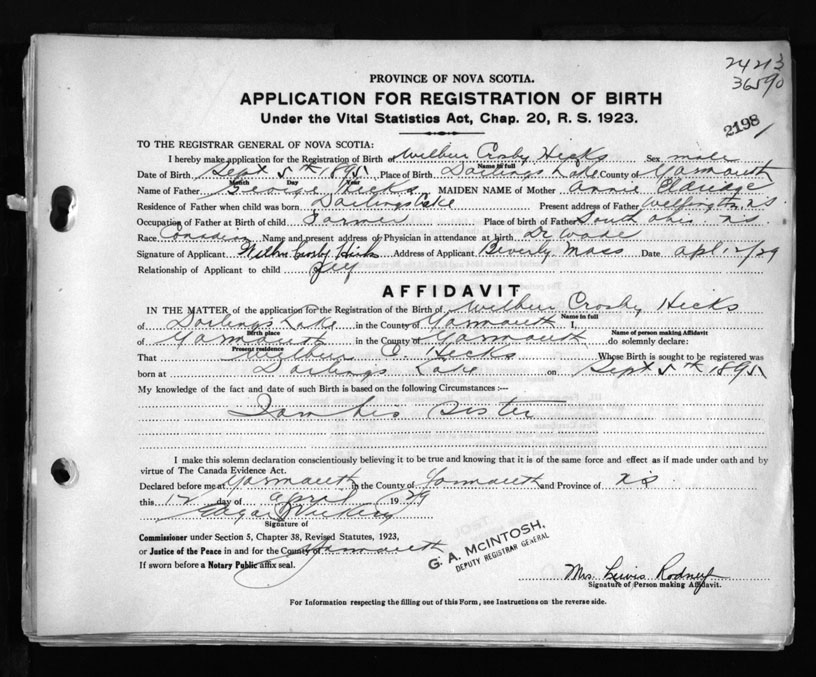 24213
36590
2198
PROVINCE OF NOVA SCOTIA.
APPLICATION FOR REGISTRATION OF BIRTH
Under the Vital Statistics Act, Chap. 20, R. S. 1923.
TO THE REGISTRAR GENERAL OF NOVA SCOTIA:
I hereby make application for the Registration of Birth of Wilbur Crosby Hicks Sex male
Name in full
Date of Birth Sept 5th 1895 Place of Birth Darlings Lake County of Yarmouth
Month Day Year
Name of Father George Hicks MAIDEN NAME of Mother Annie Eldridge
Residence of Father when child was born Darlings Lake Present address of Father Wellington N.S.
Occupation of Father at Birth of child Farmer Place of birth of Father South Ohio N.S.
Race Canadian Name and present address of Physician in attendance at birth Dr Wade
Signature of Applicant Wilbur Crosby Hicks Address of Applicant Beverly Mass Date Apl 12/29
Relationship of Applicant to child Self
AFFIDAVIT
IN THE MATTER of the application for the Registration of the Birth of Wilbur Crosby Hicks
Name in full
of Darlings Lake in the County of Yarmouth I,
Birth place Name of person making Affidavit
of Yarmouth in the County of Yarmouth do solemnly declare:
Present residence
That Wilbur C. Hicks Whose Birth is sought to be registered was
born at Darlings Lake on Sept 5th 1895
My knowledge of the fact and date of such Birth is based on the following Circumstances :—
I am his sister
I make this solemn declaration conscientiously believing it to be true and knowing that it is of the same force and effect as if made under oath and by
virtue of The Canada Evidence Act.
Declared before me at Yarmouth in the County of Yarmouth and Province of N.S.
this 12 day of April 1929
Edgar Vickery
Signature of
Commissioner under Section 5, Chapter 38, Revised Statutes, 1923,
or Justice of the Peace in and for the County of Yarmouth
If sworn before a Notary Public affix seal.
G. A. McINTOSH,
DEPUTY REGISTRAR GENERAL
Mrs. Lewis Rodney
Signature of Person making Affidavit.
For Information respecting the filling out of this Form, see Instructions on the reverse side.